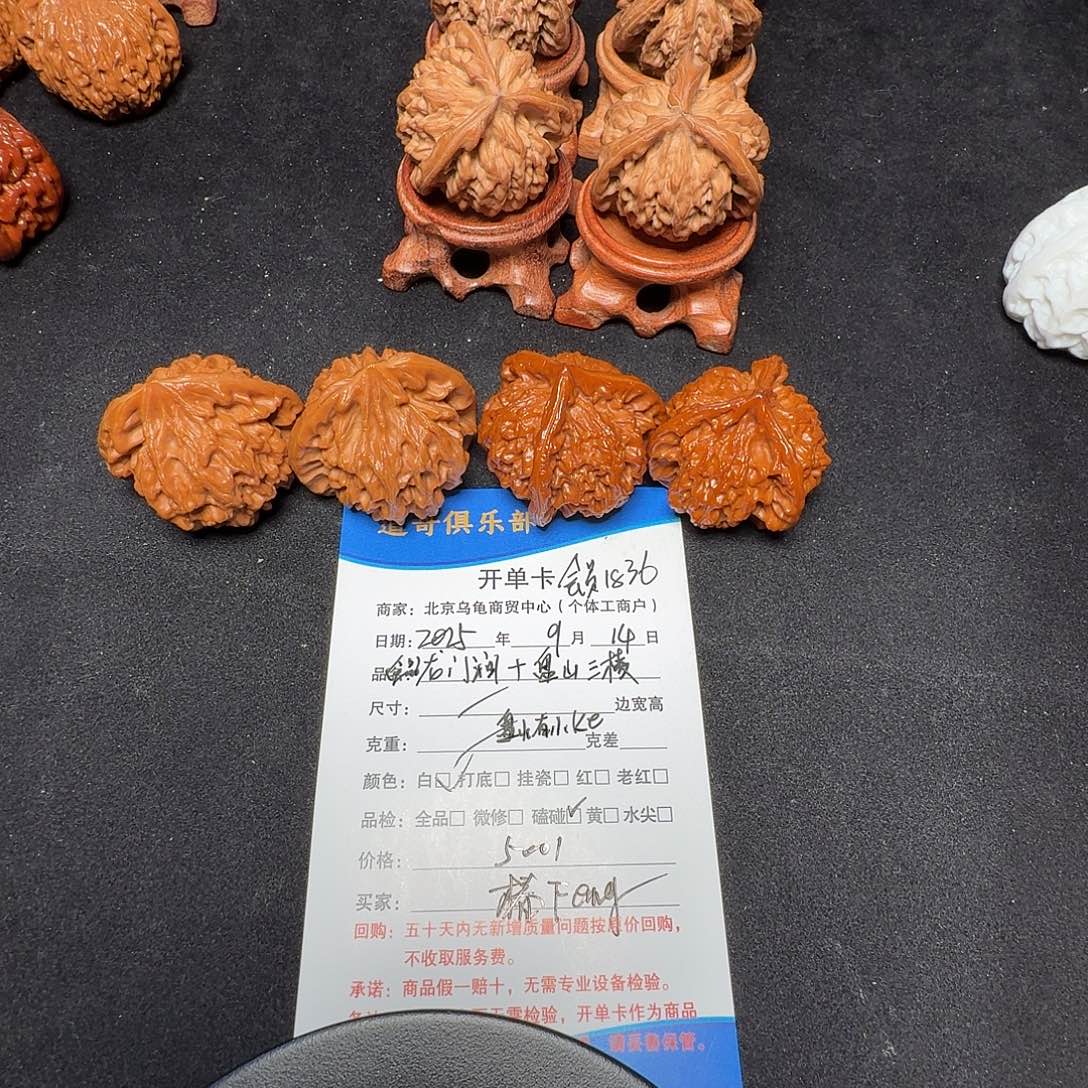 道哥俱乐部
开单卡 会员1836
商家：北京乌龟商贸中心（个体工商户）
日期：2025年 9月 14日
品 龙门润十盘山三棱
尺寸： 边宽高
克重： 克差
颜色：白☑ 打底□ 挂瓷□ 红□ 老红□
品检：全品□ 微修□ 磕碰☑ 黄□ 水尖□
价格：5001
买家：
回购：五十天内无新增质量问题按原价回购，
不收取服务费。
承诺：商品假一赔十，无需专业设备检验。
无需检验，开单卡作为商品
请妥善保管。